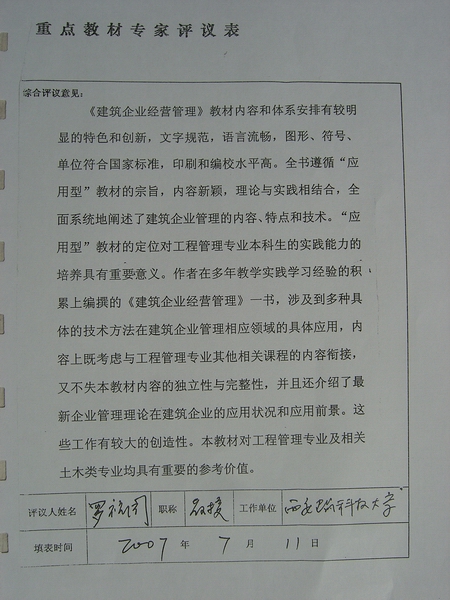 重点教材专家评议表
综合评议意见：
《建筑企业经营管理》教材内容和体系安排有较明
显的特色和创新，文字规范，语言流畅，图形、符号、
单位符合国家标准，印刷和编校水平高。全书遵循“应
用型”教材的宗旨，内容新颖，理论与实践相结合，全
面系统地阐述了建筑企业管理的内容、特点和技术。“应
用型”教材的定位对工程管理专业本科生的实践能力的
培养具有重要意义。作者在多年教学实践学习经验的积
累上编撰的《建筑企业经营管理》一书，涉及到多种具
体的技术方法在建筑企业管理相应领域的具体应用，内
容上既考虑与工程管理专业其他相关课程的内容衔接，
又不失本教材内容的独立性与完整性，并且还介绍了最
新企业管理理论在建筑企业的应用状况和应用前景。这
些工作有较大的创造性。本教材对工程管理专业及相关
土木类专业均具有重要的参考价值。
评议人姓名 罗福周 职称 教授 工作单位 西安建筑科技大学
填表时间 2007 年 7 月 11 日